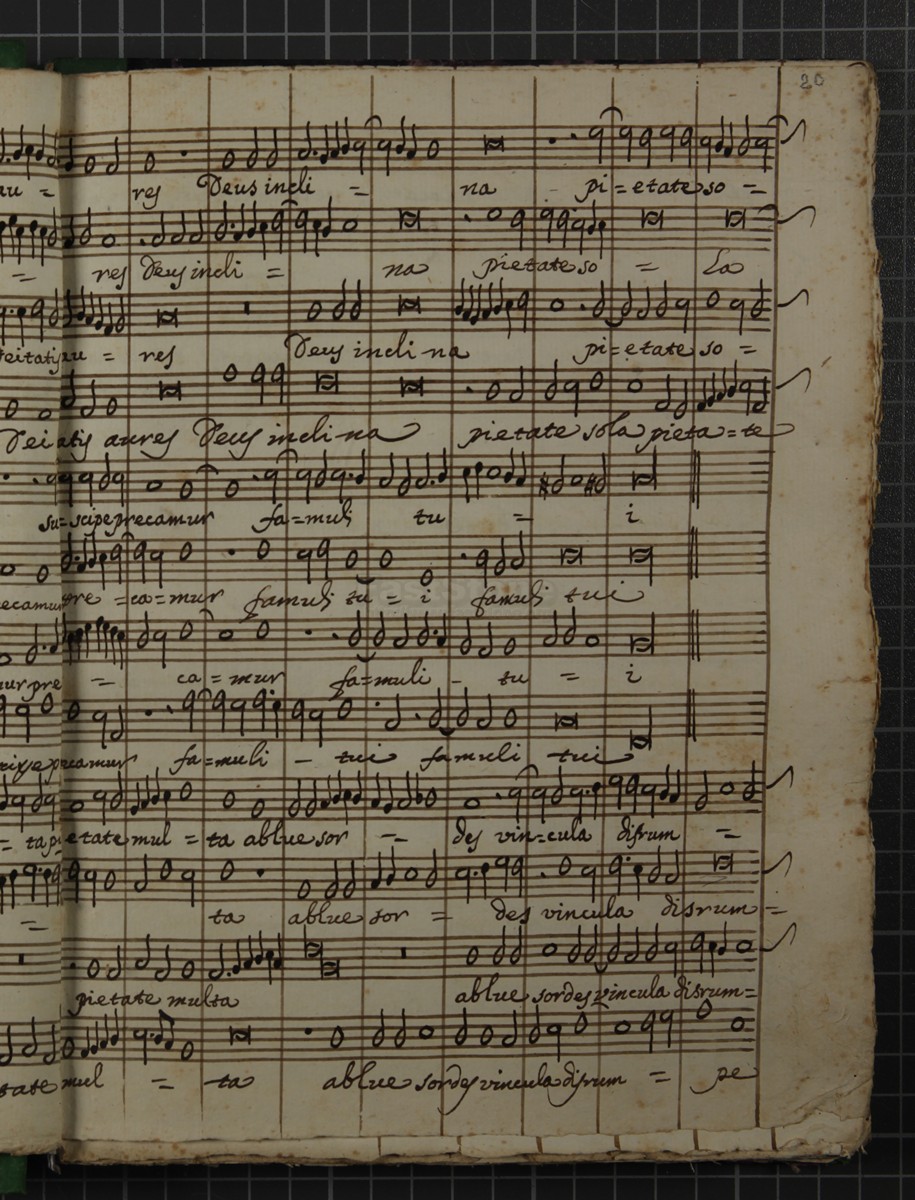 20
res Deus incli = na pi=etate so =
= res Deus incli = na pietate so = la
au = res Deus incli-na pi=etate so =
aures Deus incli-na pietate sola pieta=te
su=scipe precamur fa=muli tu = i
pre =ca=mur famuli tu = i famuli tui
pre = ca=mur fa=muli - tu = i
precamur fa=muli - tui famuli tui
= ta pietate mul = ta ablue sor = des vin=cula disrum =
= ta ablue sor = des vincula disrum =
pietate multa ablue sordes vincula disrum=
mul = ta ablue sordes vincula disrum = pe